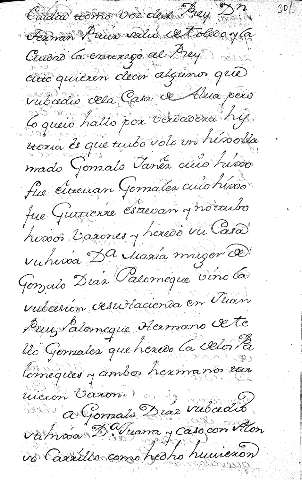 301
Ciudad como dice del Rey Dn
Hernan Perez salio de toledo y la
Ciudad la entrego al Rey
aqui quieren decir algunos que
subcedio dela Casa de Alua pero
lo que io hallo por verdadera hys
toria es que tubo solo un hixo lla
mado Gomalo Yañez cuio hixo
fue esteuan Gonzalez cuio hixo
fue Gutierre estevan y no tubo
hixos Varones y heredo su Casa
su hixa Da Maria muger de
Gonzalo Diaz Palomeque vino la
subcesion desu Hacienda en Juan
Ruiz Palomeque Hermano de te
llo Gonzalez que heredo la delos Pa
lomeques y ambos hermanos car
ecieron Varon
a Gomalo Diaz subcedio
su hixa Da Juana y caso con Alon
so Carrillo como hecho hunieron